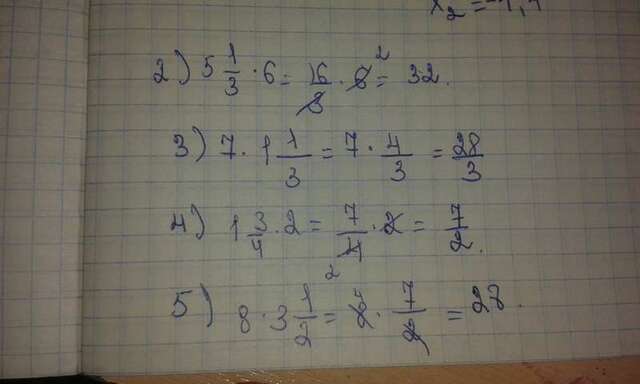 x₂ = -1,4
2) 5 1/3 · 6 = 16/3 · 6 ² = 32.
3) 7 · 1 1/3 = 7 · 4/3 = 28/3
4) 1 3/4 · 2 = 7/4 ₂ · 2 = 7/2.
5) 8 · 3 1/2 = 8 ⁴ · 7/2 = 28.